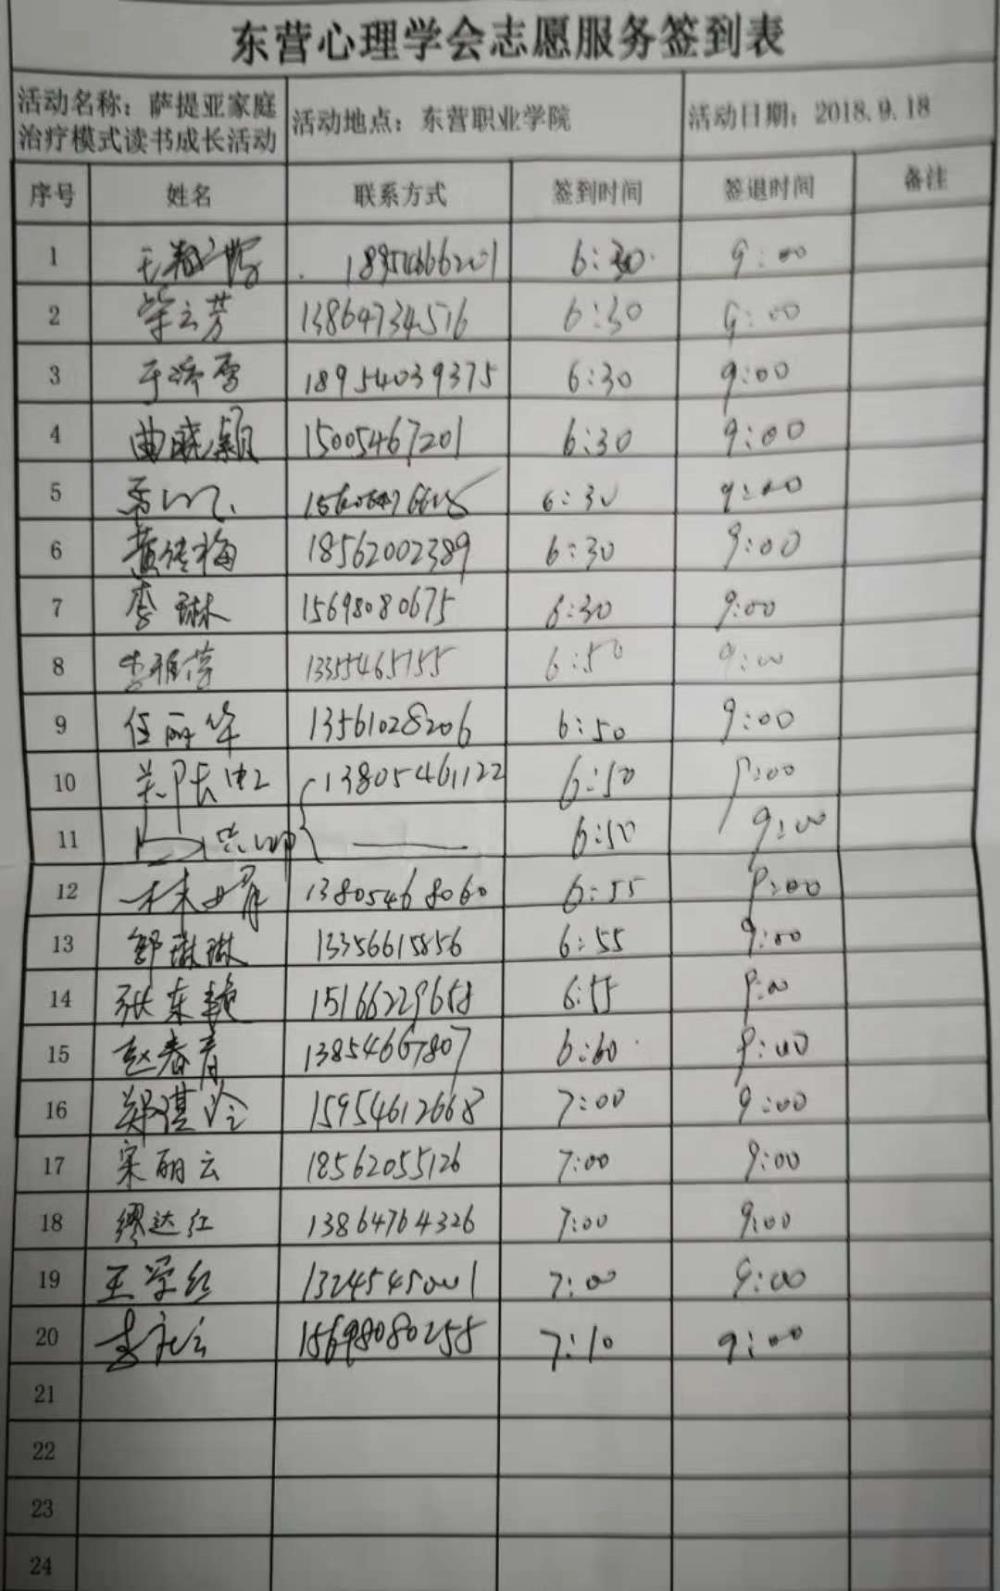 东营心理学会志愿服务签到表
活动名称：萨提亚家庭治疗模式读书成长活动 活动地点：东营职业学院 活动日期：2018.9.18
序号 姓名 联系方式 签到时间 签退时间 备注
1 18954666201 6:30 9:00
2 柴云芳 13864734516 6:30 9:00
3 18954039375 6:30 9:00
4 曲晓颖 15005467201 6:30 9:00
5 6:30 9:00
6 黄传梅 18562002389 6:30 9:00
7 李琳 15698080675 6:30 9:00
8 李雅芬 13355465755 6:50 9:00
9 任丽华 13561028206 6:50 9:00
10 13805461122 6:50 9:00
11 6:50 9:00
12 13805468060 6:55 9:00
13 邹琳琳 13356615856 6:55 9:00
14 张东艳 15166229658 6:55 9:00
15 赵春青 13854667807 6:60 9:00
16 郑琪玲 15954612668 7:00 9:00
17 宋丽云 18562055126 7:00 9:00
18 缪达红 13864764326 7:00 9:00
19 王学红 13245450001 7:00 9:00
20 15698080255 7:10 9:00
21
22
23
24